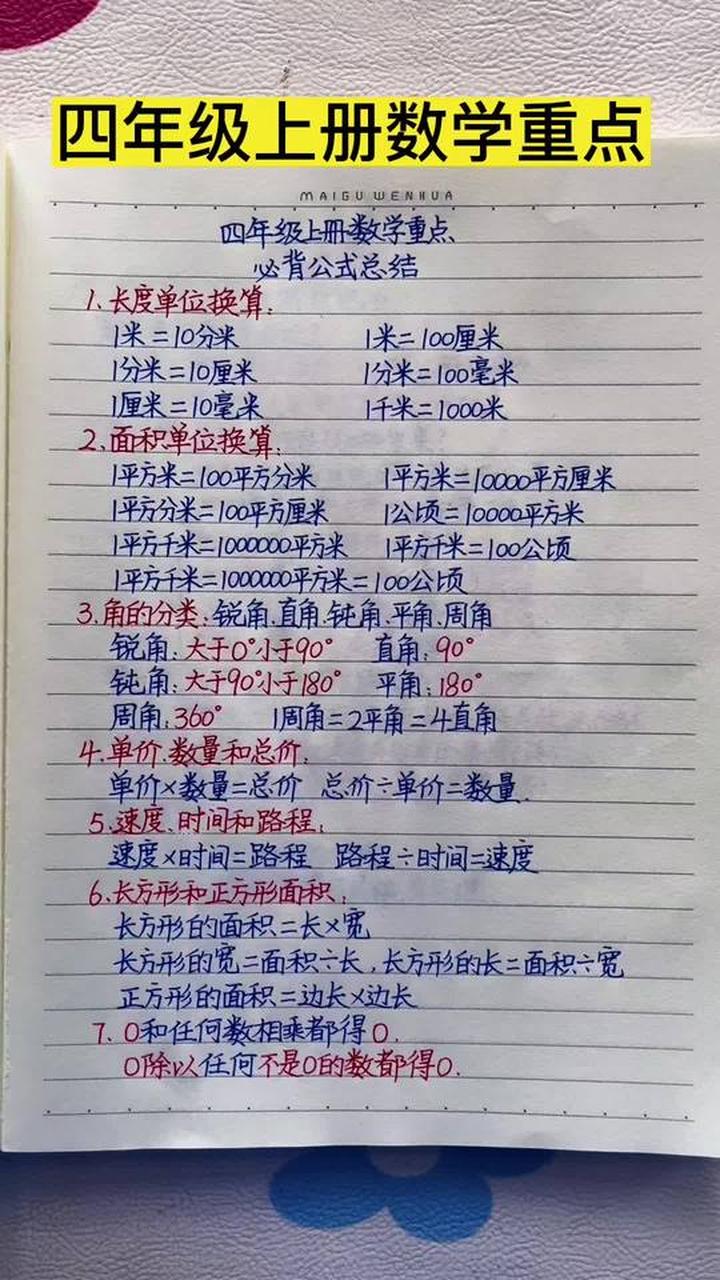 四年级上册数学重点
MAIGU WENHUA
四年级上册数学重点、
必背公式总结
1.长度单位换算:
1米=10分米 1米=100厘米
1分米=10厘米 1分米=100毫米
1厘米=10毫米 1千米=1000米
2.面积单位换算:
1平方米=100平方分米 1平方米=10000平方厘米
1平方分米=100平方厘米 1公顷=10000平方米
1平方千米=1000000平方米 1平方千米=100公顷
1平方千米=1000000平方米=100公顷
3.角的分类:锐角、直角、钝角、平角、周角
锐角:大于0°小于90° 直角:90°
钝角:大于90°小于180° 平角:180°
周角:360° 1周角=2平角=4直角
4.单价、数量和总价:
单价×数量=总价 总价÷单价=数量.
5.速度、时间和路程:
速度×时间=路程 路程÷时间=速度
6.长方形和正方形面积:
长方形的面积=长×宽
长方形的宽=面积÷长,长方形的长=面积÷宽
正方形的面积=边长×边长
7.0和任何数相乘都得0.
0除以任何不是0的数都得0.